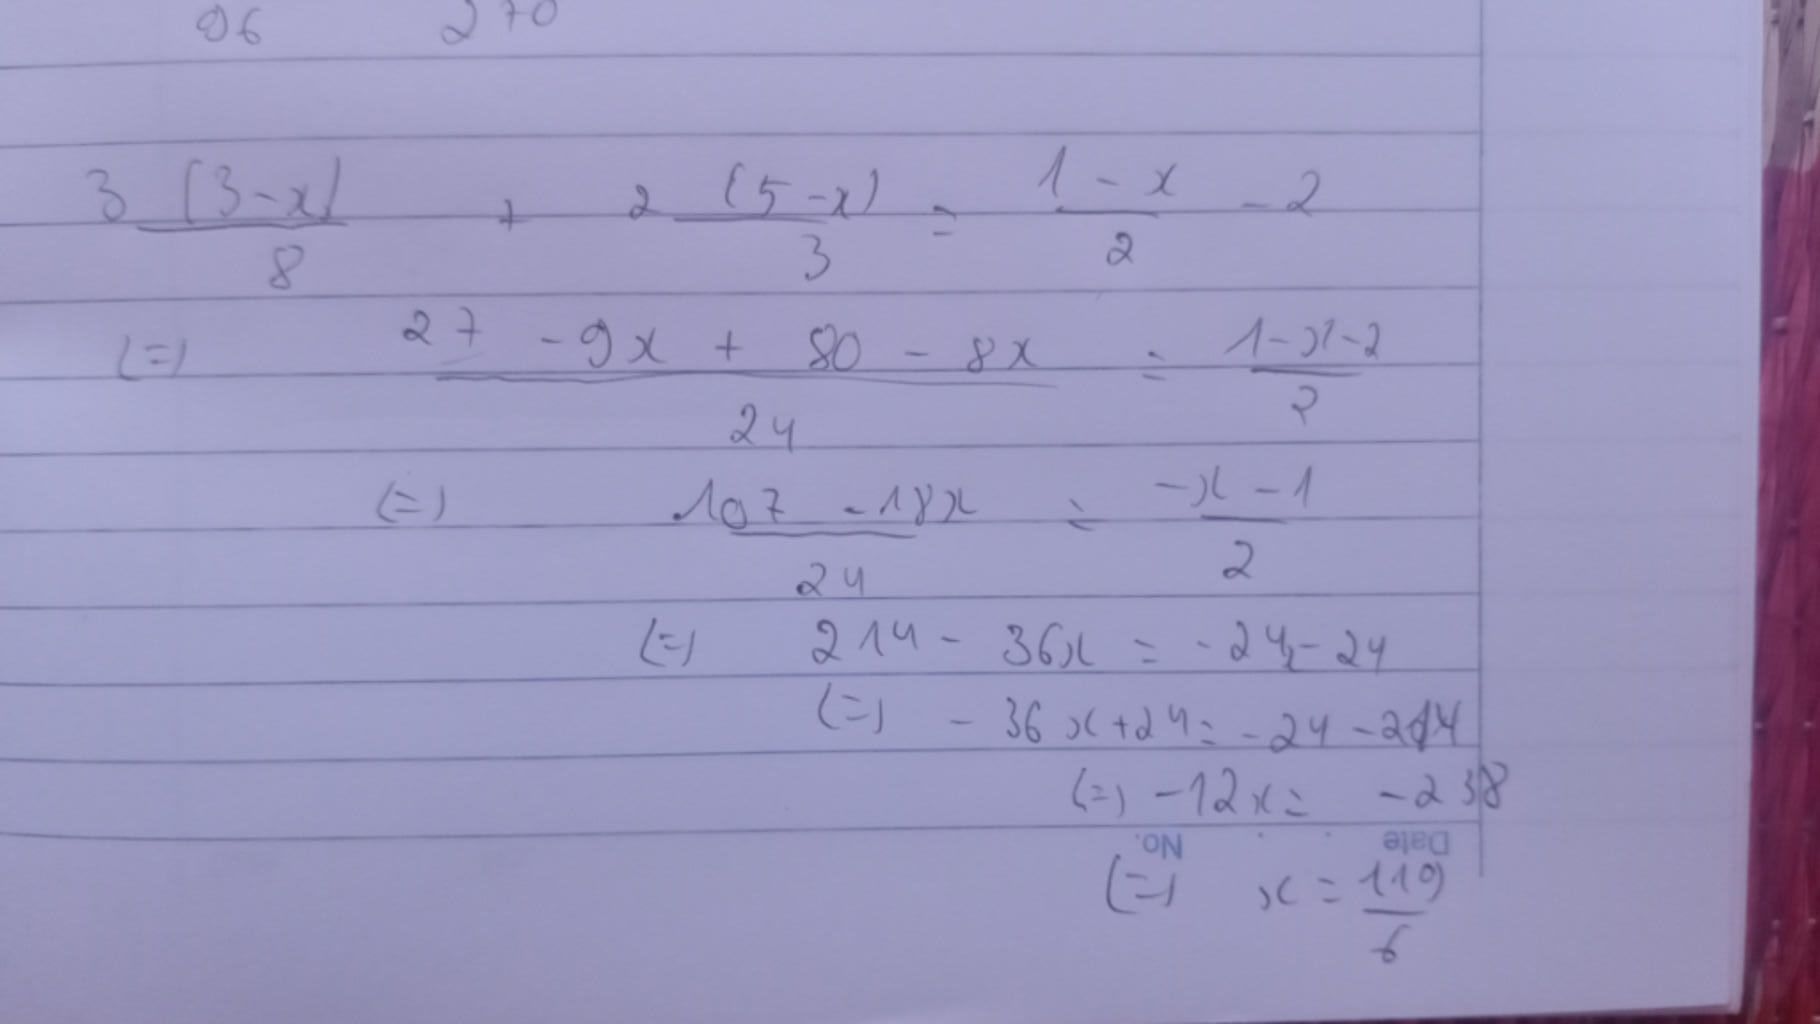 96 270
3 (3-x)/8 + 2 (5-x)/3 = 1-x/2 - 2
(=) 27 - 9x + 80 - 8x/24 = 1-x-2/2
(=) 107 - 18x/24 = -x-1/2
(=) 214 - 36x = -24x - 24
(=) - 36x + 24 = - 24 - 214
(=) -12x = -238
No. Date
(=) x = 119/6